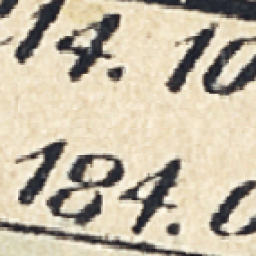 14. 10
184. 0